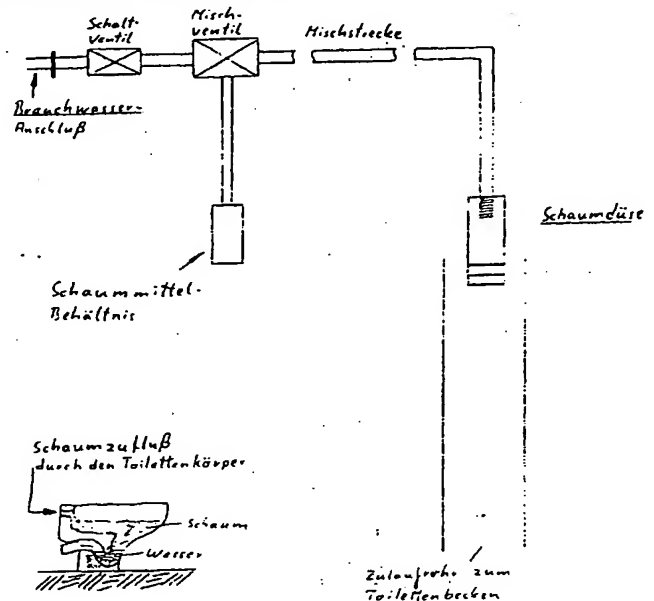 Schalt-
ventil
Misch-
ventil
Mischstrecke
Brauchwasser-
Anschluß
Schaumdüse
Schaummittel-
Behältnis
Schaumzufluß
durch den Toilettenkörper
Schaum
Wasser
Zulaufrohr zum
Toilettenbecken